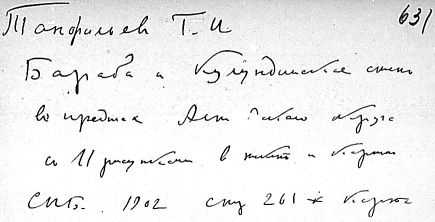 631
Танфильев Г. И
Бараба и Кулундинская степь
в пределах Алтайского округа
с 11 рисунками в тексте и картой
СПБ. 1902 стр 261 + карта